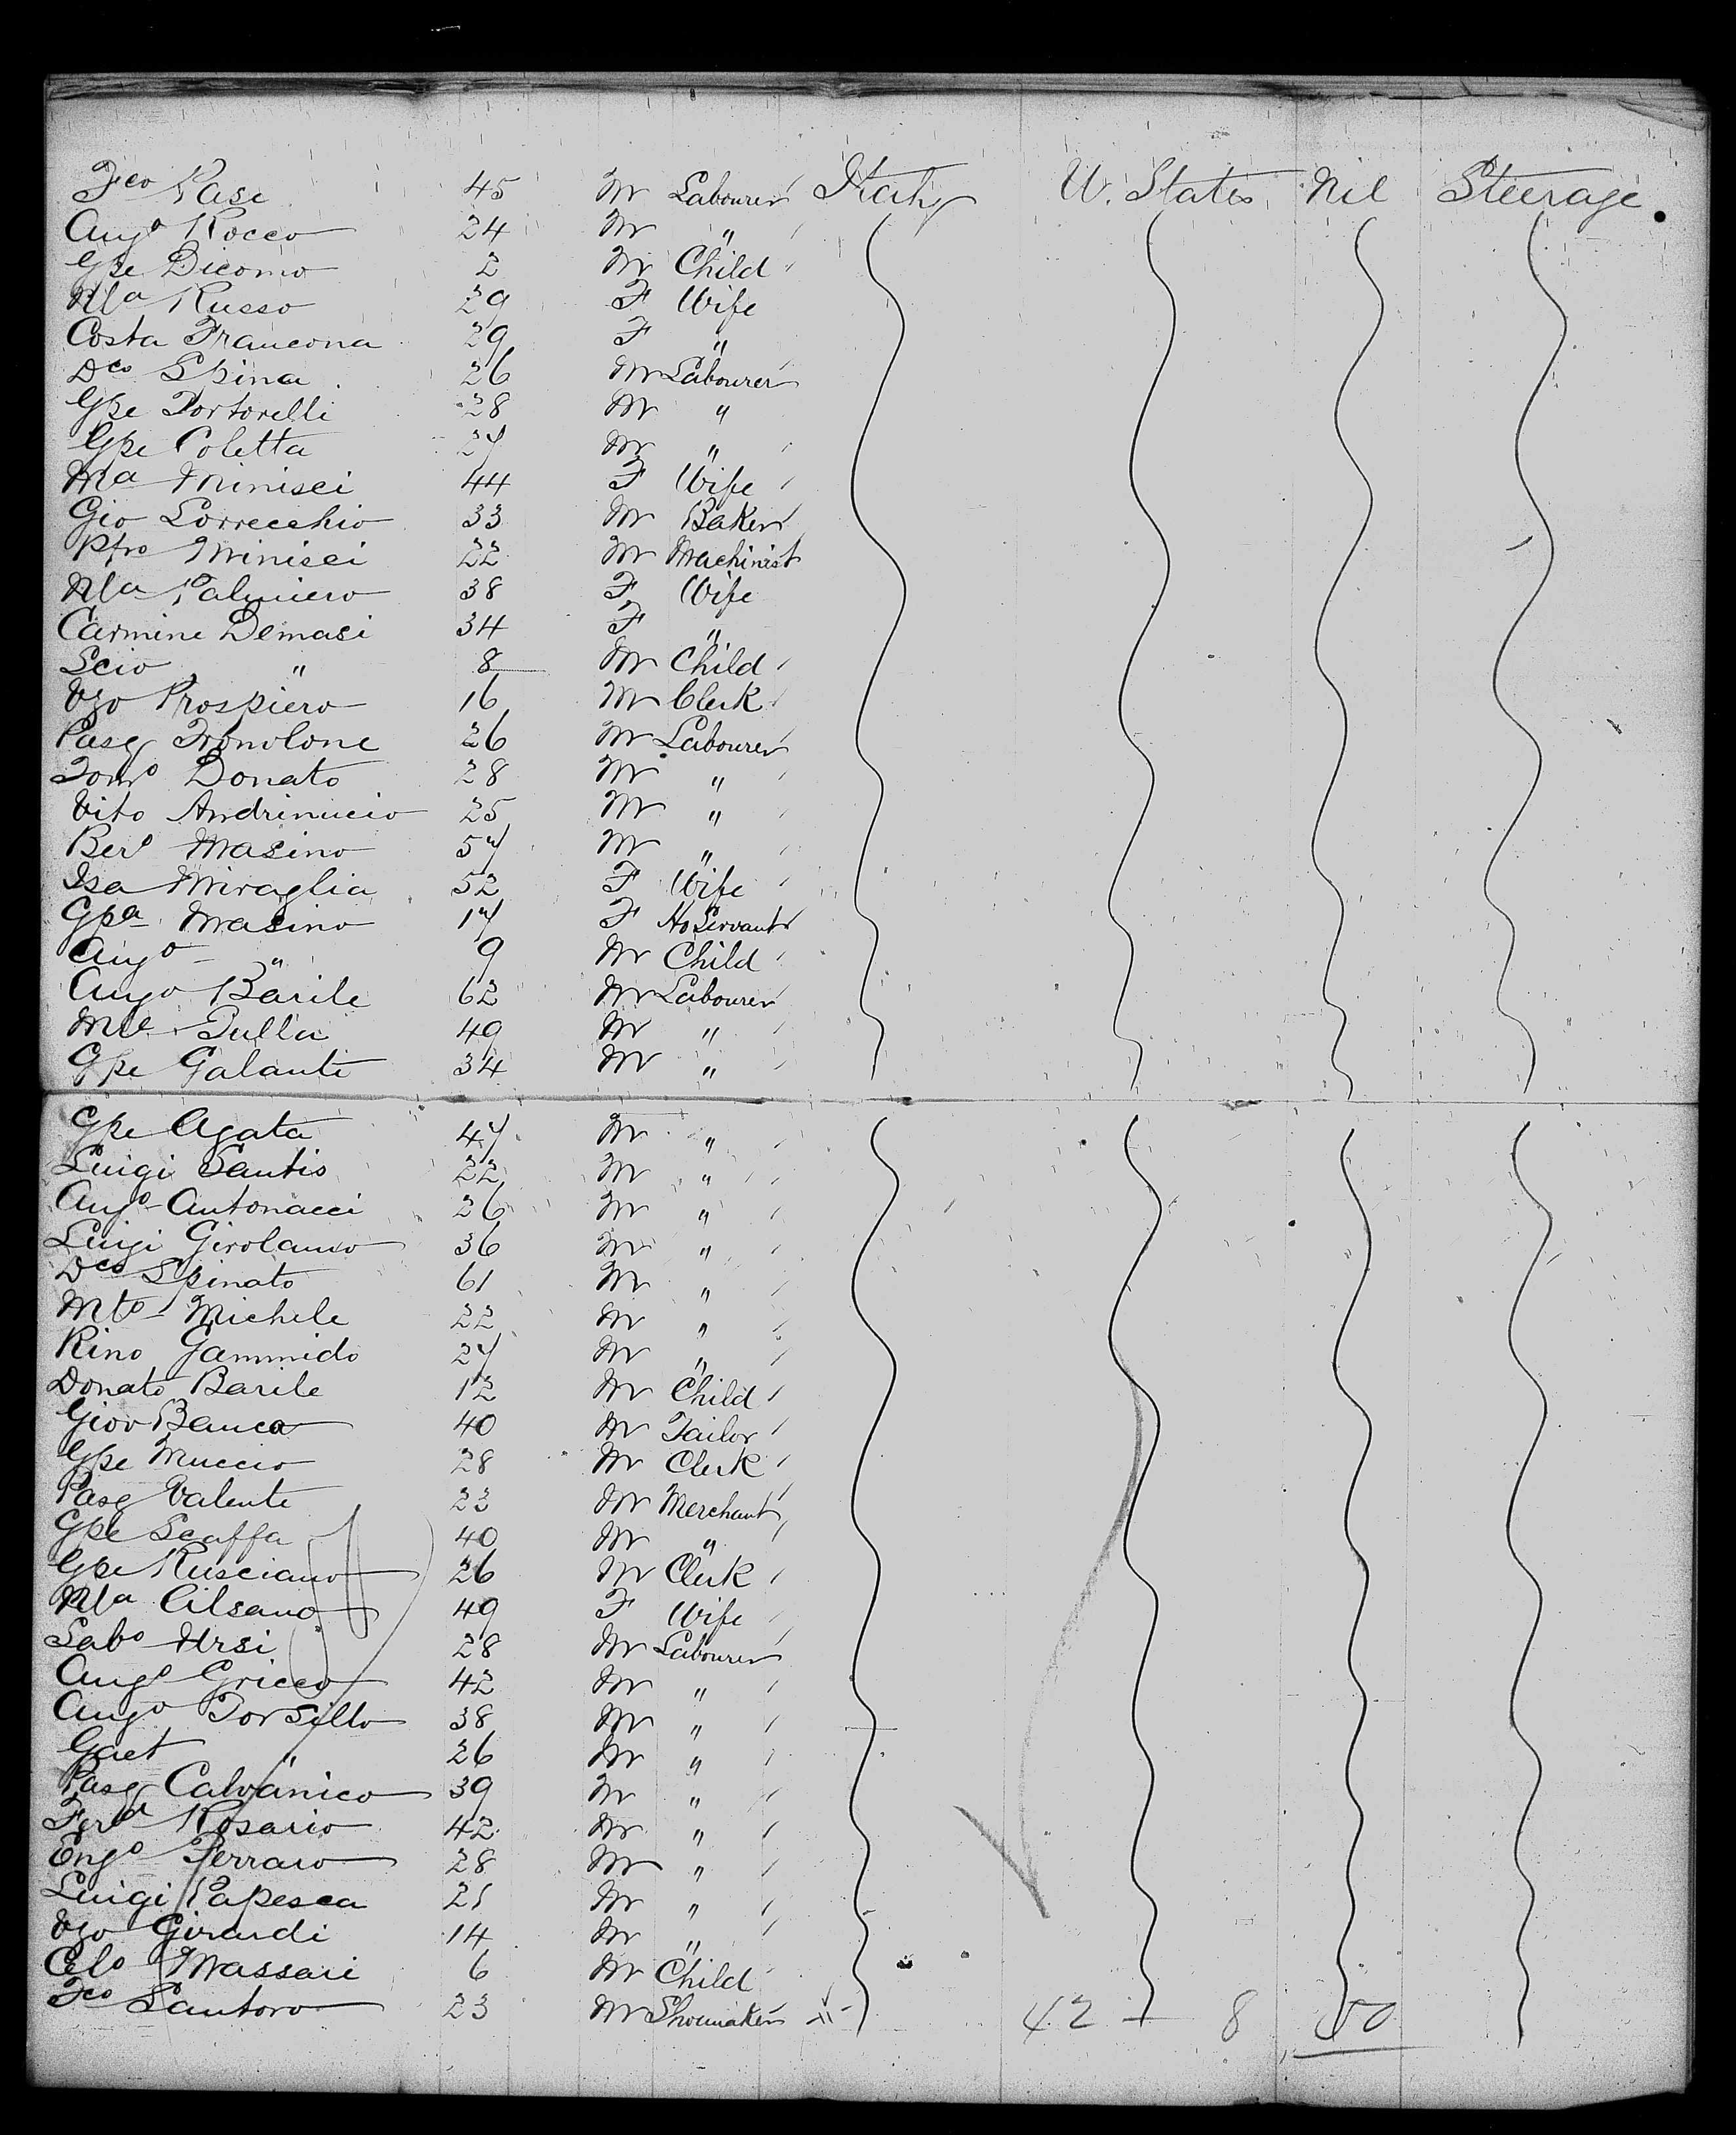 Fco Rase 45 M Labourer Italy U. States Nil Steerage.
Angº Rocco 24 M "
Gpe Dicomo 2 M Child
Mla Russo 29 F Wife
Costa Francona 29 F "
Dco Spina 26 M Labourer
Gpe Tortorelli 28 M "
Gpe Coletta 27 M "
Ma Minisci 44 F Wife
Gio Lorrecchio 33 M Baker
Minisci 22 M Machinist
Mla Palmiero 38 F Wife
Carmine Demasi 34 F "
Scio " 8 M Child
Vzo Prospiero 16 M Clerk
Pasq Tronolone 26 M Labourer
Tomº Donato 28 M "
Vito Andrinucio 25 M "
Berº Masino 57 M "
Isa Miraglia 52 F Wife
Gpa Masino 17 F Ho Servant
Angº " 9 M Child
Angº Barile 62 M Labourer
Mle Pulla 49 M "
Gpe Galanti 34 M "
Gpe Agata 47 M "
Luigi Santis 22 M "
Angº Antonacci 26 M "
Luigi Girolamo 36 M "
Dco Spinato 61 M "
Mto Michele 22 M "
Rino Gammido 27 M "
Donato Barile 12 M Child
Giov Banca 40 M Tailor
Gpe Muccio 28 M Clerk
Pasq Valente 23 M Merchant
Gpe Scaffa 40 M "
Gpe Rusciano 26 M Clerk
Mla Cilsano 49 F Wife
Sabº Ursi 28 M Labourer
Angº Gricco 42 M "
Angº Torsillo 38 M "
Gaet " 26 M "
Pasq Calvanico 39 M "
Ferd Rosario 42 M "
Engº Ferraro 28 M "
Luigi Papesca 21 M "
Vzo Girardi 14 M "
Celº Massari 6 M Child
Fco Santoro 23 M Shoemaker 42 — 8 50